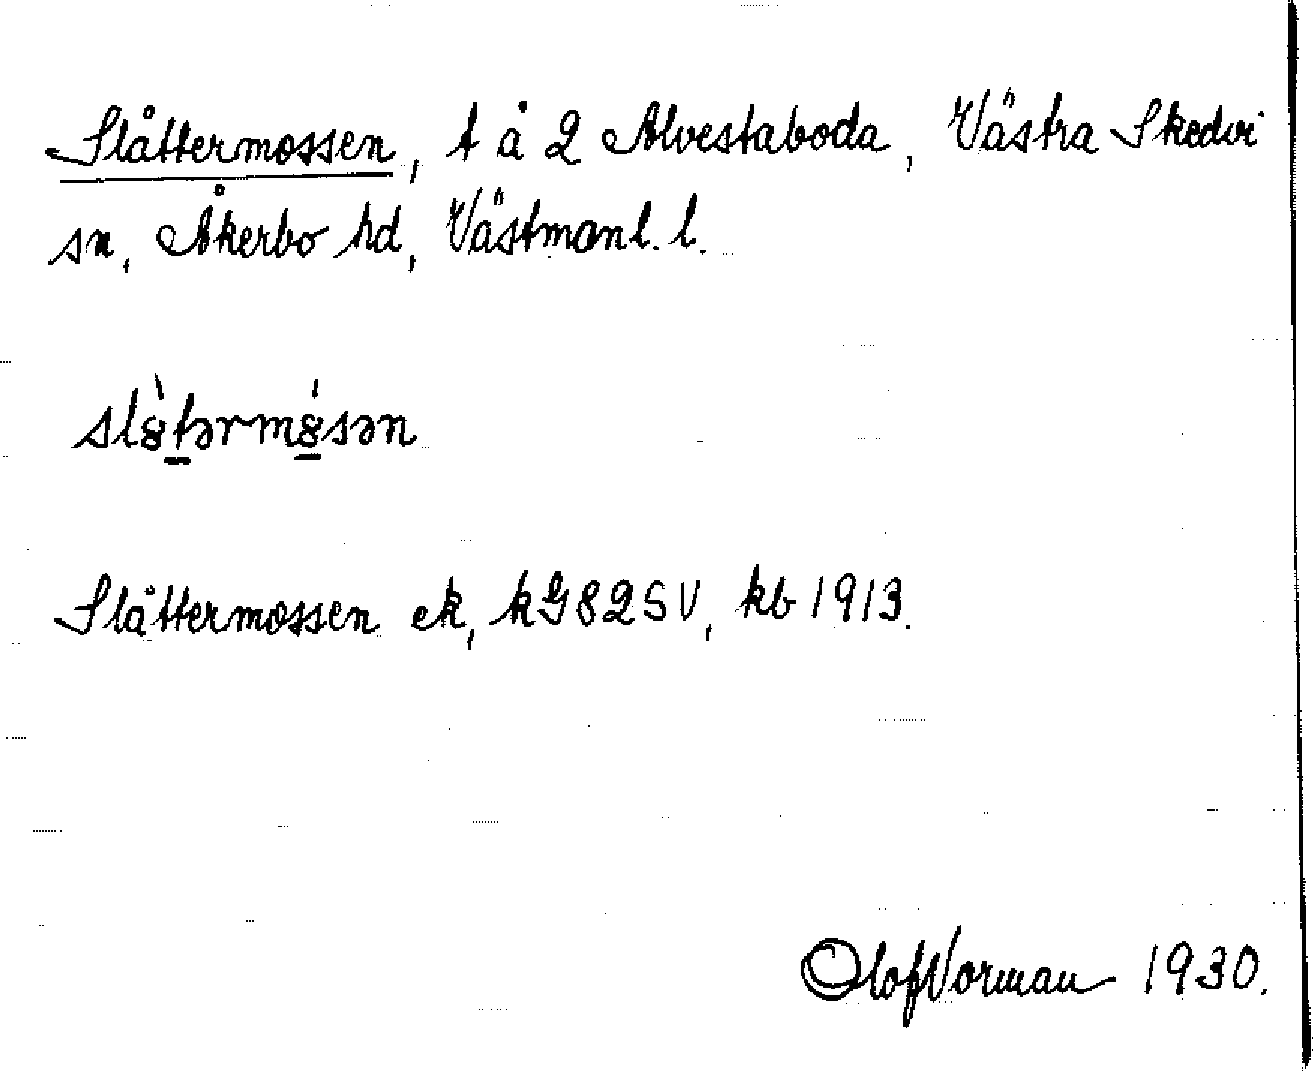 Slåttermossen, t å 2 Alvestaboda, Västra Skedvi
sn, Åkerbo hd, Västmanl. l.
slȣ̀tərmȣ́sən
Slåttermossen ek, kG82SV, kb 1913.
Olof Vorman 1930.